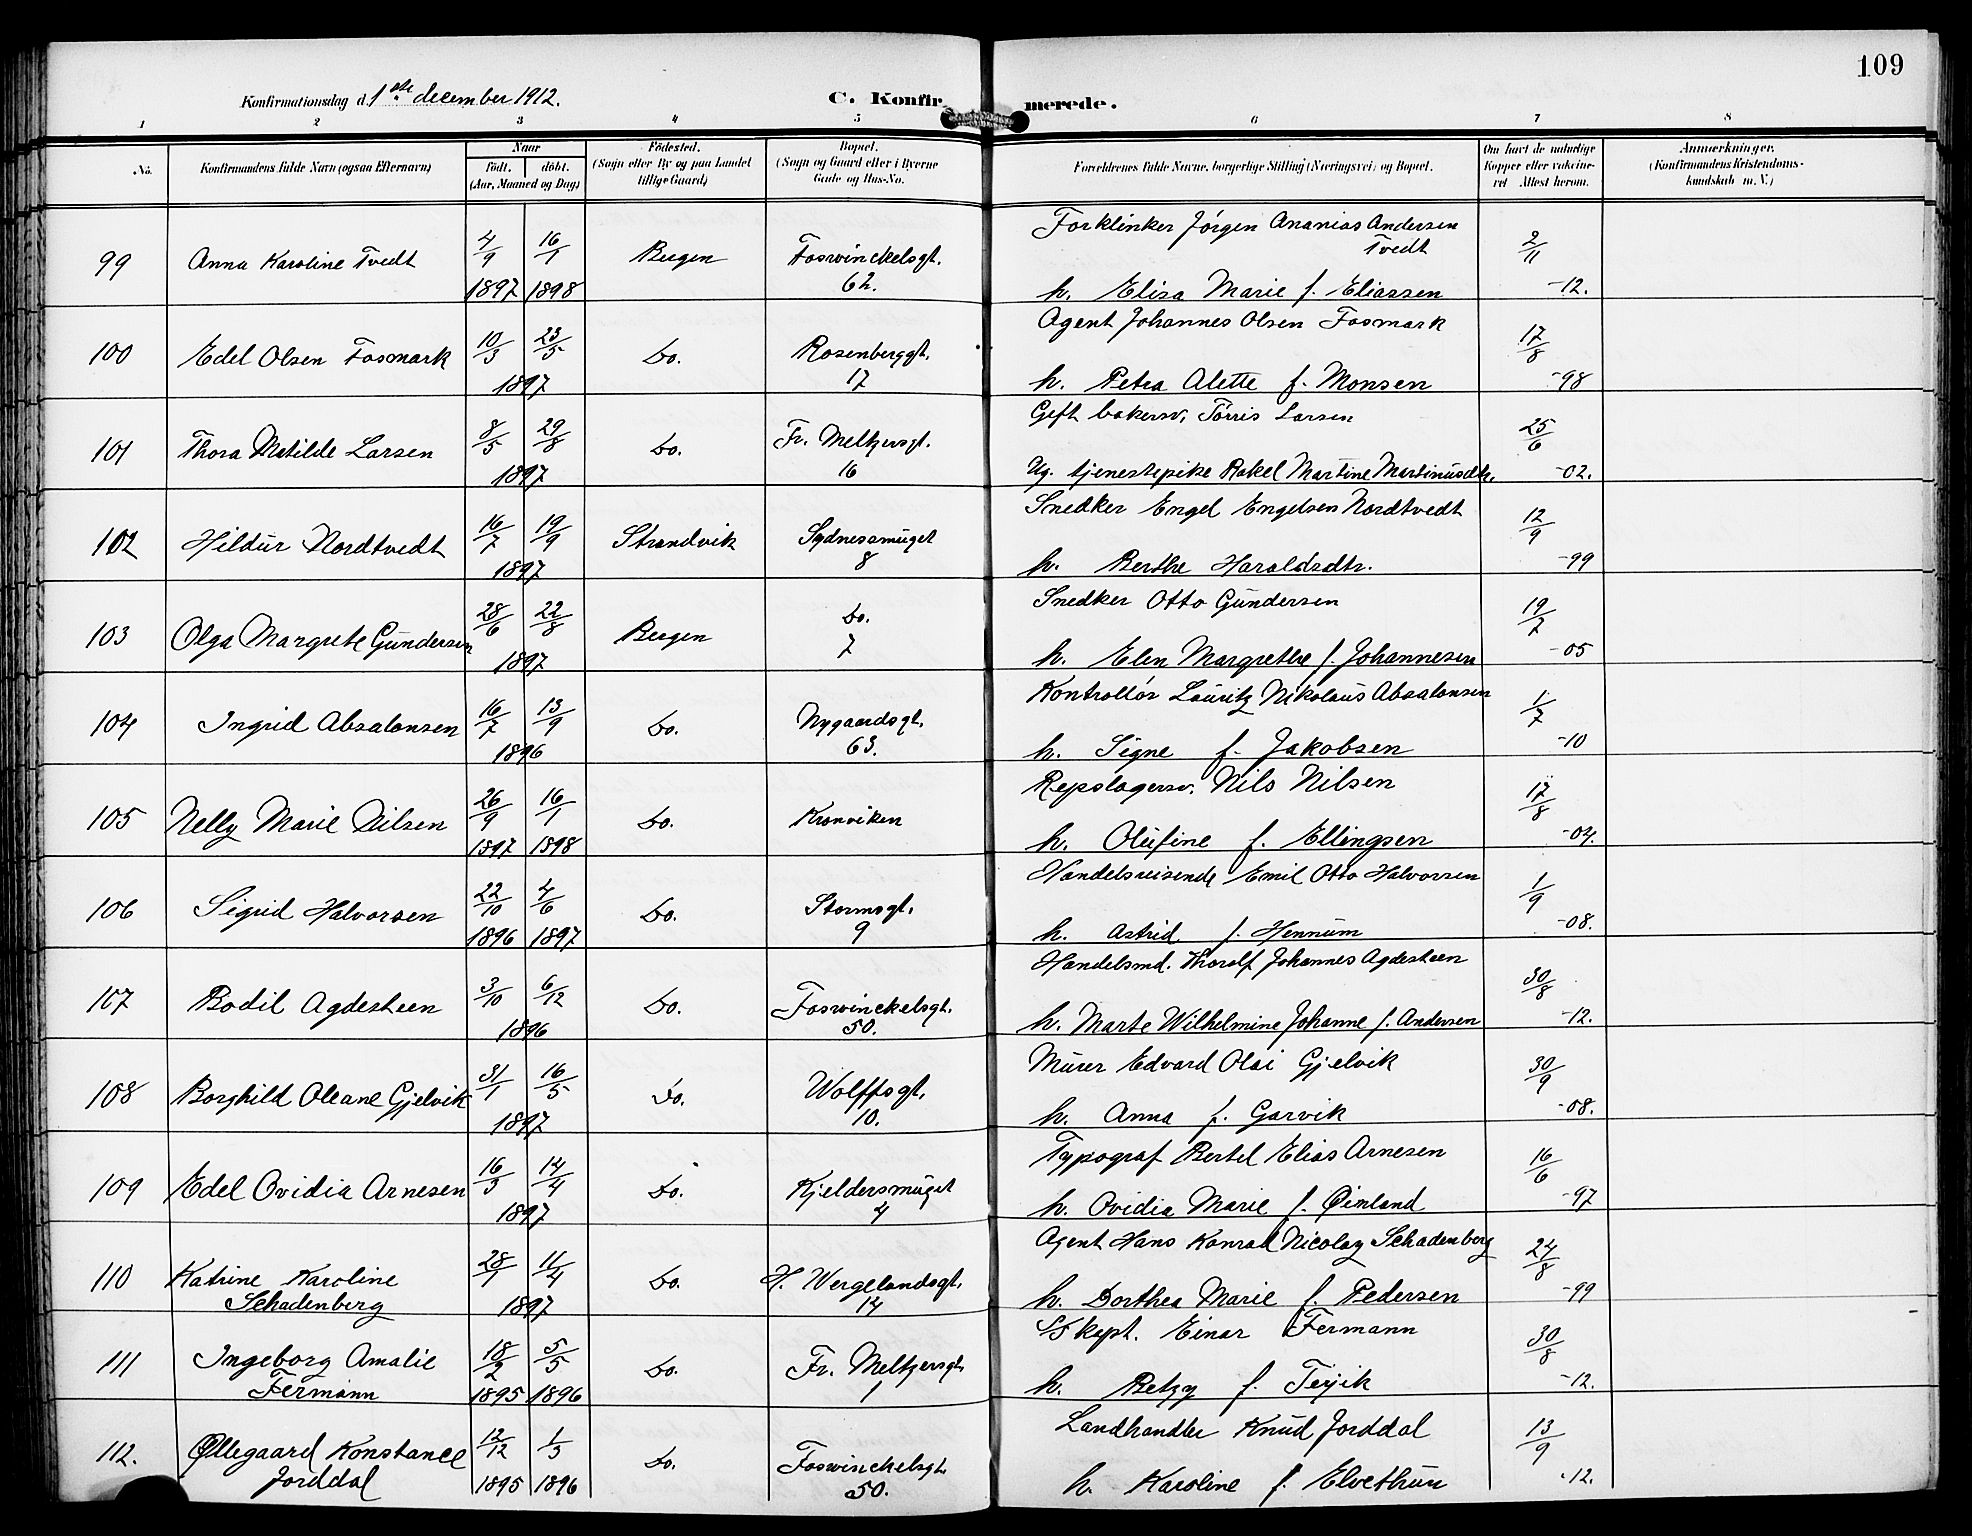 109
Konfirmationsdag d. 1ste december 1912. C. Konfirmerede.
1 2 3 4 5 6 7 8
No. Konfirmandens fulde Navn (ogsaa Efternavn) Naar født. døbt. (Aar, Maaned og Dag) Fødested. (Sogn eller By og paa Landet tillige Gaard) Bopæl. (Sogn og Gaard eller i Byerne Gade og Hus-No. Forældrenes fulde Navne, borgerlige Stilling (Næringsvei) og Bopæl. Om havt de naturlige Kopper eller vakcineret Attest herom. Anmærkninger. (Konfirmandens Kristendomskundskab m. V.)
99 Anna Karoline Tvedt 4/9 1897 16/1 1898 Bergen Foswinckelsgt. 62. Forklinker Jørgen Ananias Andersen Tvedt 2/11 -12.
h. Elisa Marie f. Eliassen
100 Edel Olsen Fosmark 10/3 23/5 1897 Do. Rosenberggt. 17 Agent Johannes Olsen Fosmark 17/8 -98
h. Petra Alette f. Monsen
101 Thora Matilde Larsen 8/5 29/8 1897 Do. Fr. Meltzersgt. 16 Gift bakersv. Tørris Larsen 25/6 -02.
Ug. tjenestepike Rakel Martine Martinusdtr.
102 Hildur Nordtvedt 16/7 19/9 1897 Strandvik Sydnessmuget 8 Snedker Engel Engelsen Nordtvedt 12/9 -99
h. Berthe Haraldsdtr.
103 Olga Margrete Gundersen 28/6 22/8 1897 Bergen Do. 7 Snedker Otto Gundersen 19/7 -05
h. Elen Margrethe f. Johannesen
104 Ingrid Absalonsen 16/7 13/9 1896 Do. Nygaardsgt. 63. Kontrollør Lauritz Nikolaus Absalonsen 1/7 -10
h. Signe f. Jakobsen
105 Nelly Marie Nilsen 26/9 1897 16/1 1898 Do. Kronviken Repslagersv. Nils Nilsen 17/8 -04.
h. Olufine f. Ellingsen
106 Sigrid Halvorsen 22/10 1896 4/6 1897 Do. Stormsgt. 9 Handelsreisende Emil Otto Halvorsen 1/9 -08.
h. Astrid f. Hennum
107 Bodil Agdesteen 3/10 6/12 1896 Do. Foswinckelsgt. 50. Handelsmd. Thoralf Johannes Agdesteen 30/8 -12.
h. Marte Wilhelmine Johanne f. Andersen
108 Borghild Oleane Gjelvik 31/1 16/5 1897 Do. Wolffsgt. 10. Murer Edvard Olai Gjelvik 30/9 -08.
h. Anna f. Garvik
109 Edel Ovidia Arnesen 16/3 14/4 1897 Do. Kjeldersmuget 4 Typograf Bertel Elias Arnesen 16/6 -97
h. Ovidia Marie f. Øinland
110 Katrine Karoline Schadenberg 28/1 11/4 1897 Do. H. Wergelandsgt. 14 Agent Hans Konrad Nicolay Schadenberg 24/8 -99
h. Dorthea Marie f. Pedersen
111 Ingeborg Amalie Fermann 18/2 1895 5/5 1896 Do. Fr. Meltzersgt. 1 S/S kapt. Einar Fermann 30/8 -12.
h. Betzy f.
112. Øllegaard Konstance Jorddal 12/12 1895 1/3 1896 Do. Foswinckelsgt. 50. Landhandler Knud Jorddal 13/9 -12.
h. Karoline f. Elvethun